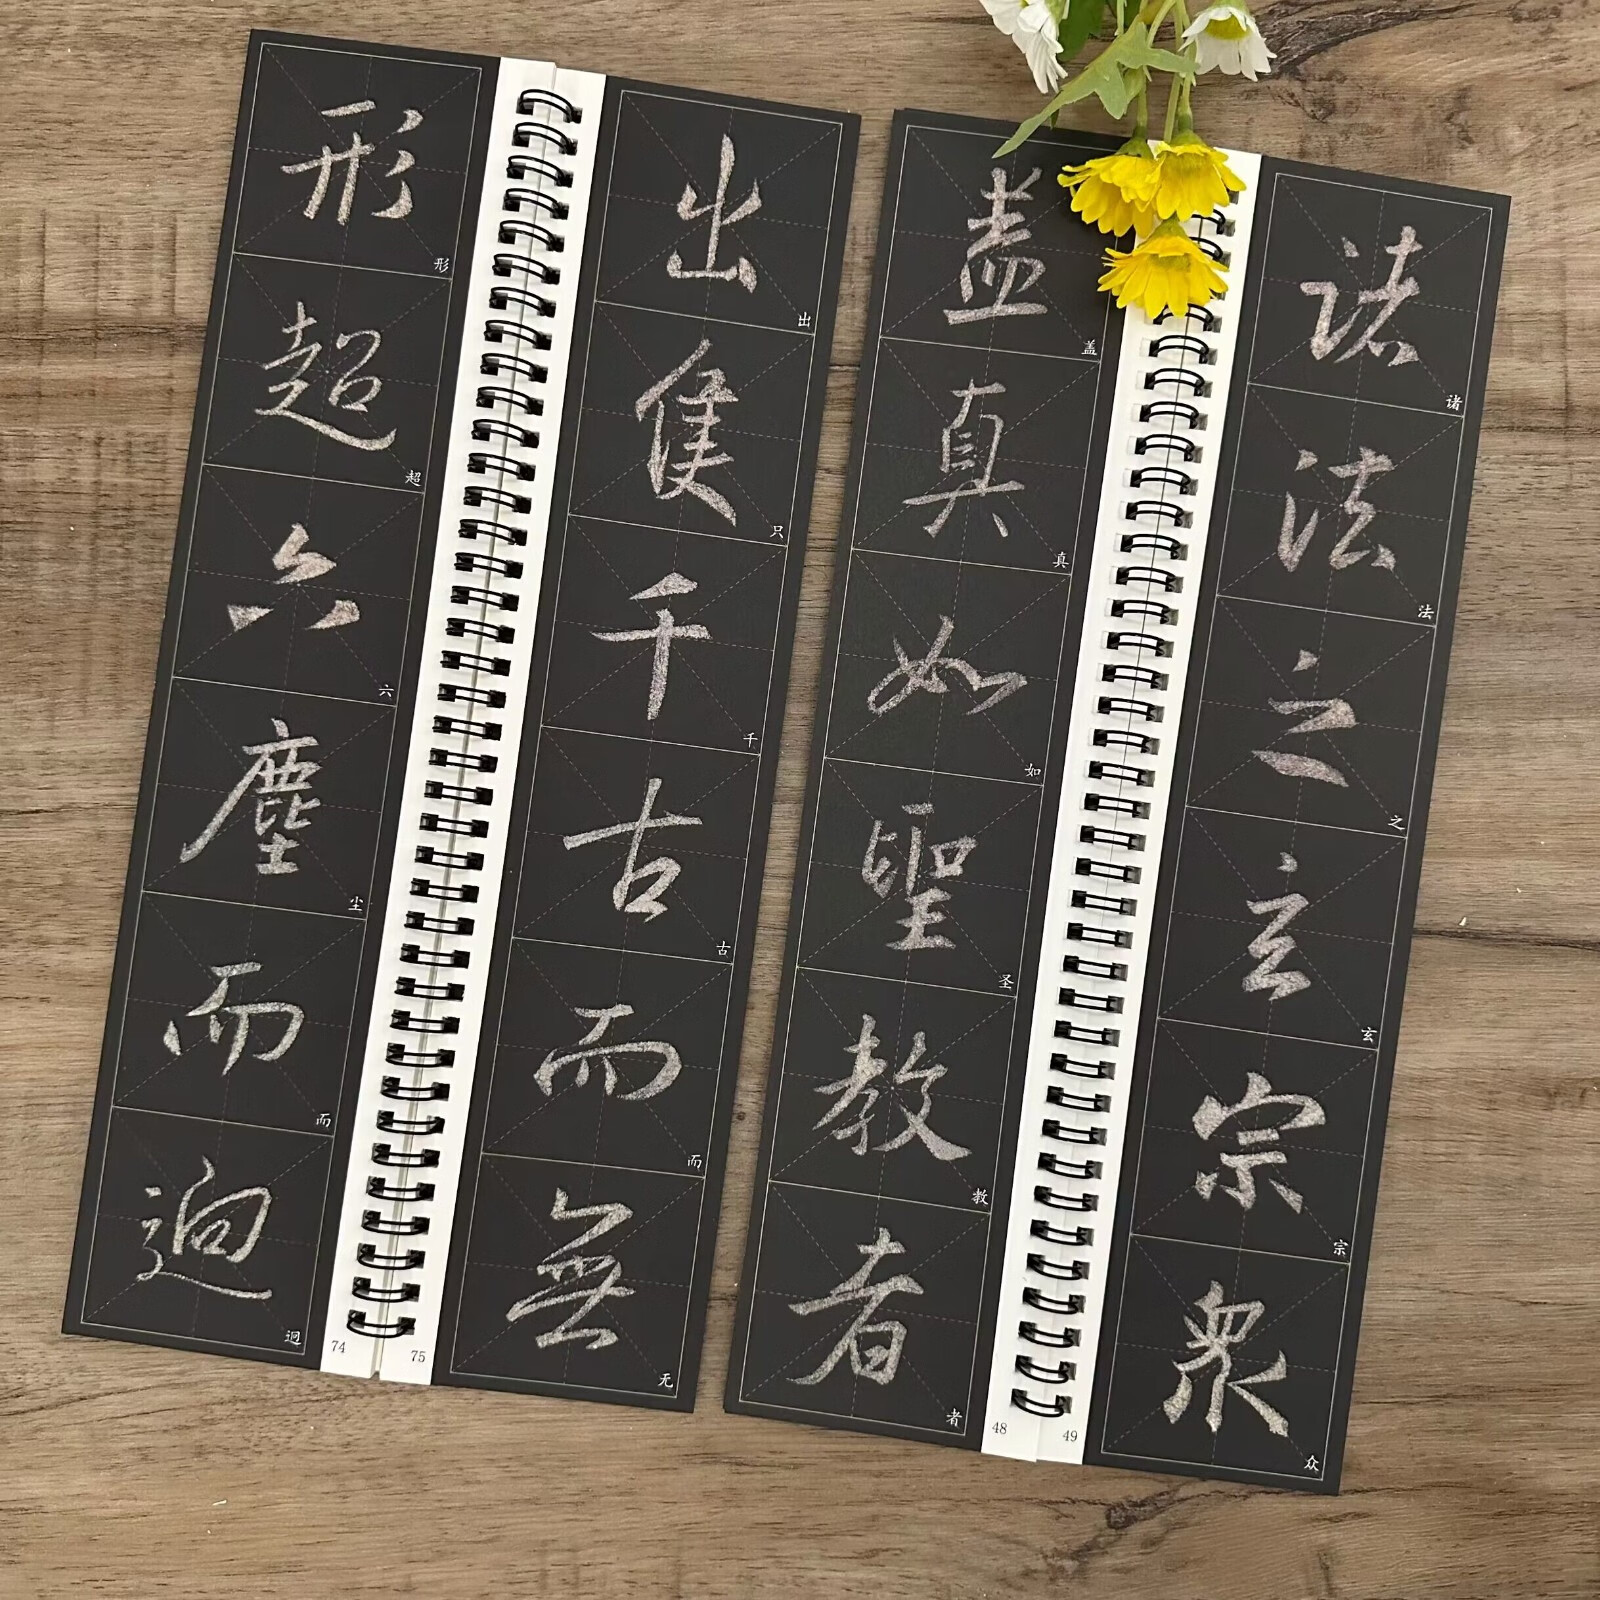 形超六塵而迥
形
超
六
尘
而
迥
74
出隻千古而無
出
只
千
古
而
无
75
盖真如聖教者
盖
真
如
圣
教
者
48
諸法之玄宗眾
诸
法
之
玄
宗
众
49